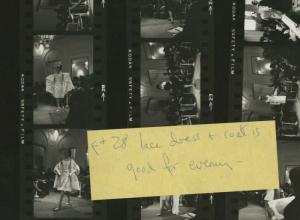 KODAK SAFETY FILM
KODAK SAFETY FILM
# 28 lace dress + coat is
good for evening -